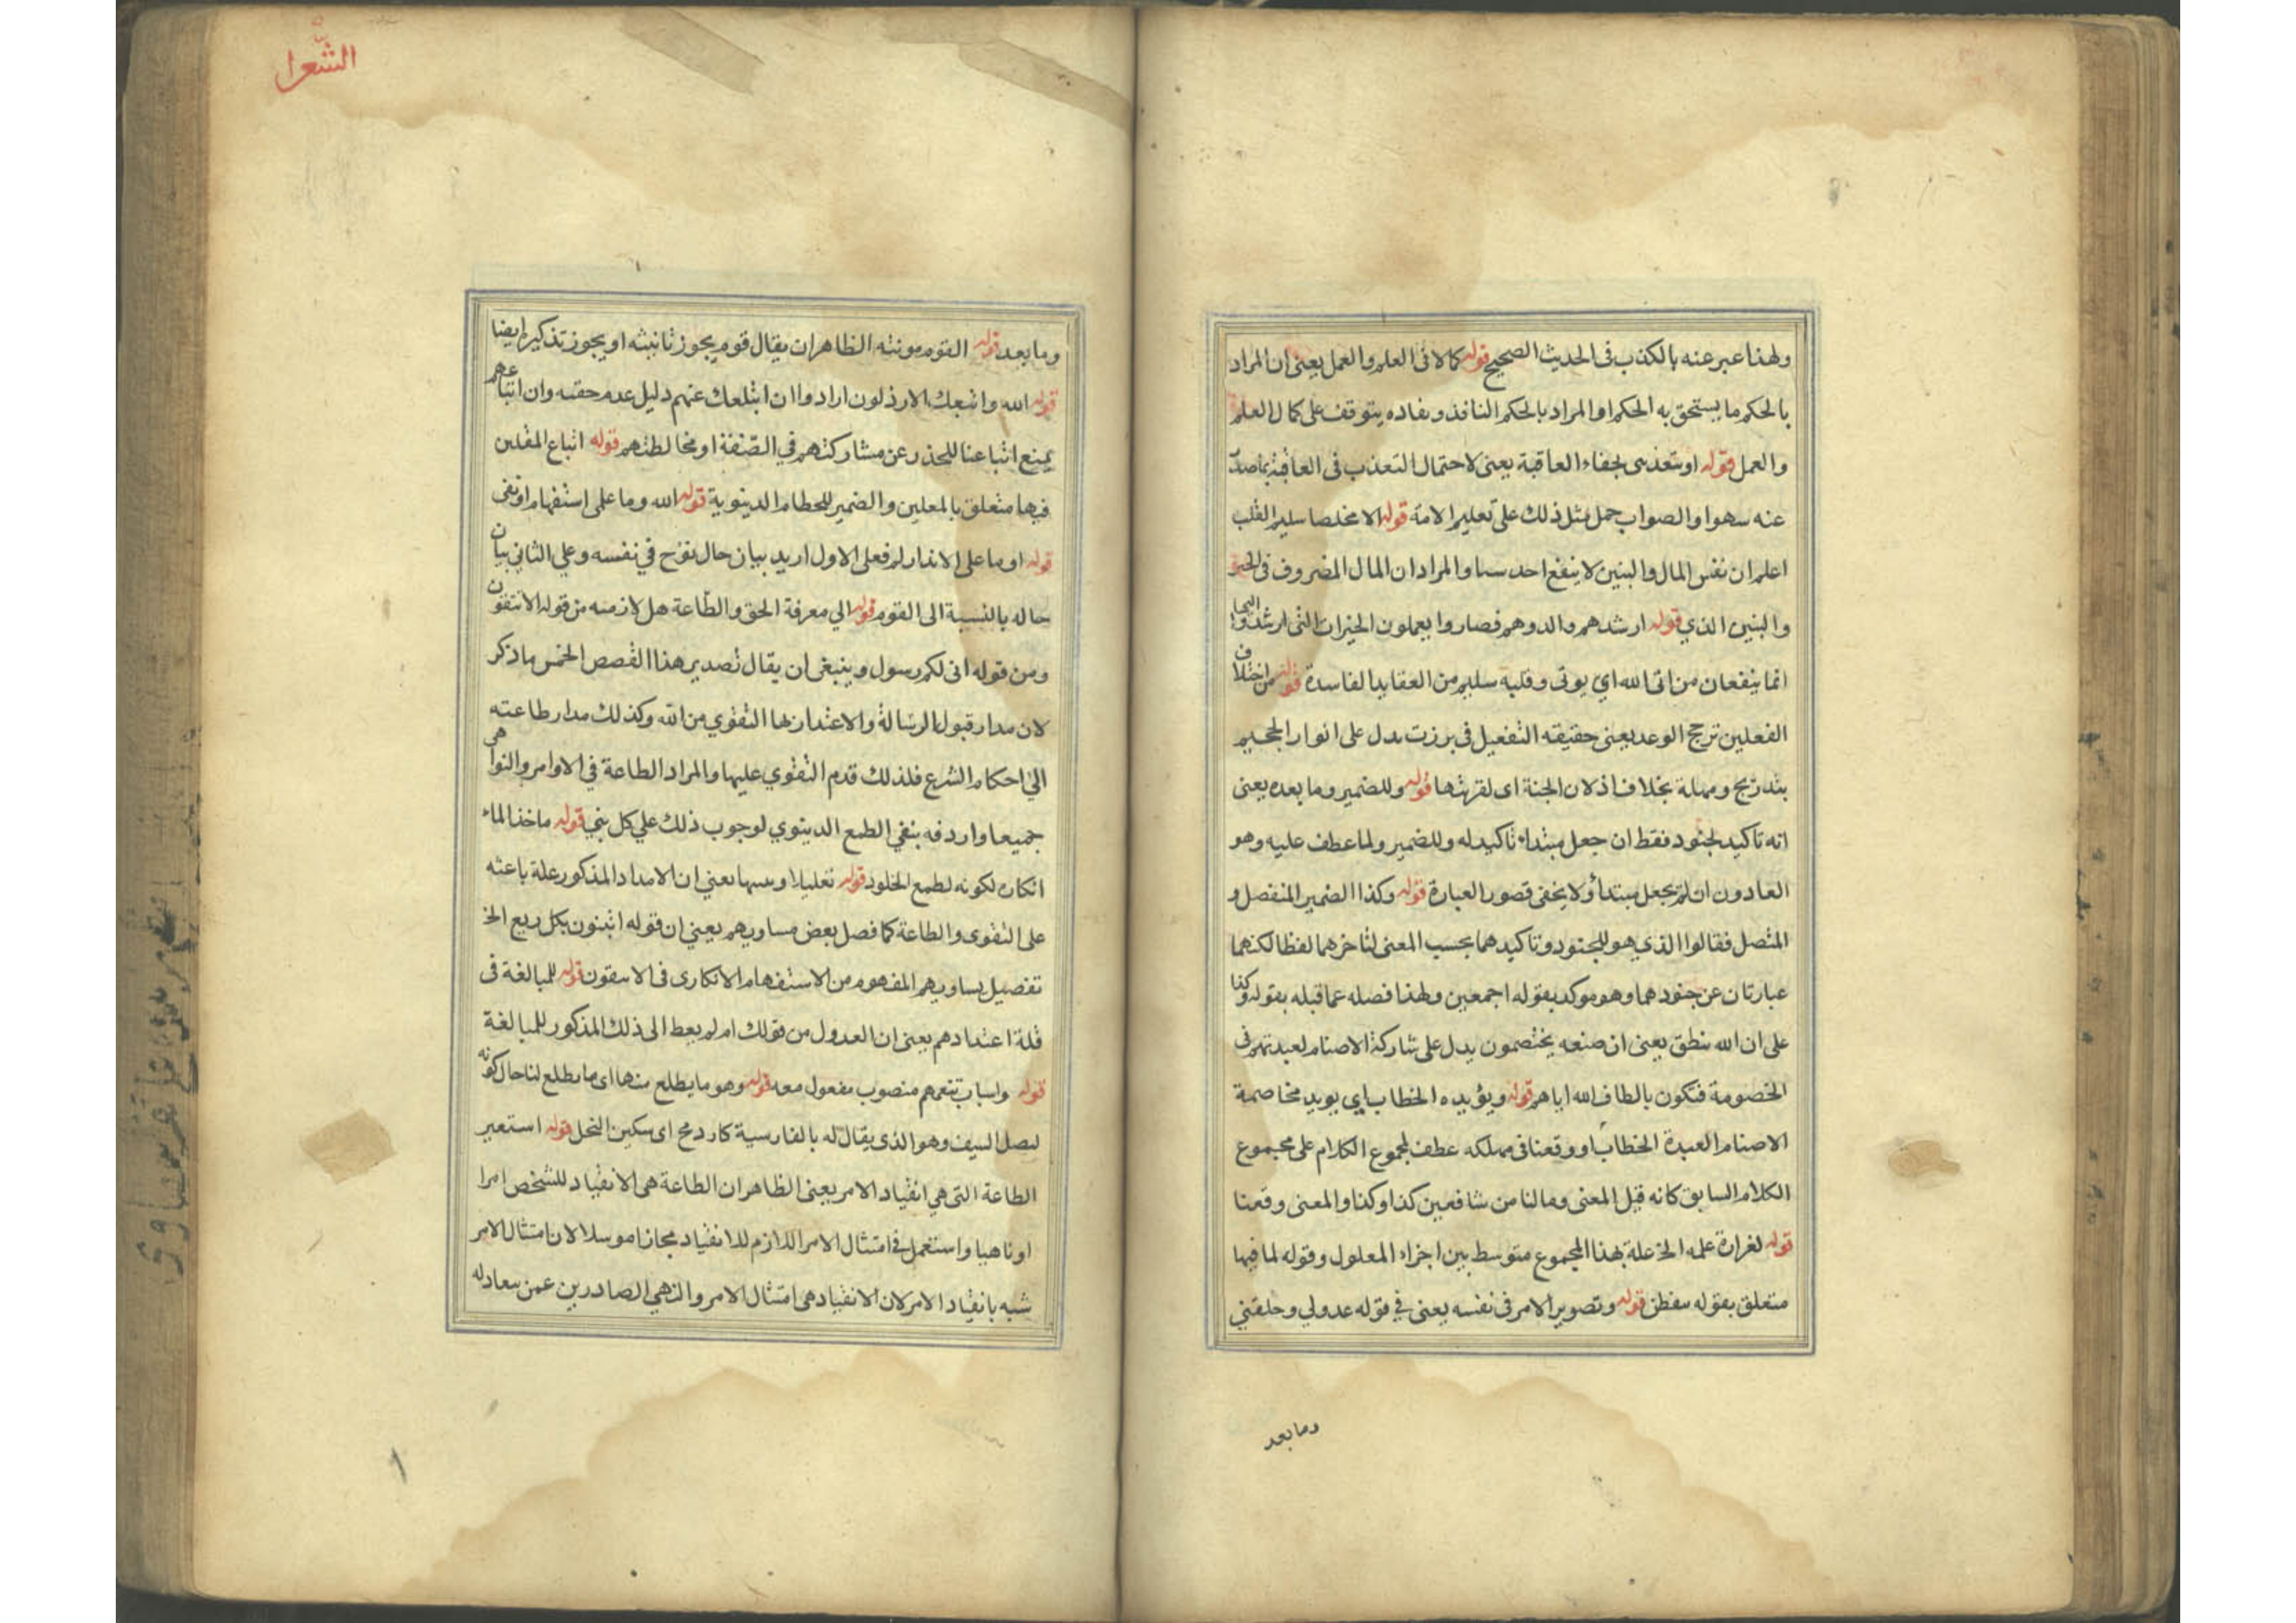 ولهذا عبر عنه بالكذب فى الحديث الصحيح قوله كمالا فى العلم والعمل يعنى ان المراد
بالحكم ما يستحق به الحكم او المراد بالحكم النافذ ونفاده يتوقف على كمال العلم
والعمل قوله او بتعذيبى لخفاء العاقبة يعنى لاحتمال التعذيب فى العاقبة بما صدر
عنه سهوا والصواب حمل مثل ذلك على تعليم الامة قوله الا مخلصا سليم القلب
اعلم ان نفس المال والبنين لا ينفع احد والمراد ان المال المصروف فى الخير
والبنين الذي قوله ارشدهم والدوهم فصاروا يعملون الخيرات التى ارشدوا اليها
انما ينفعان من اتى الله اي يوتى وقلبه سليم من العقايد الفاسدة قوله من اختلاف
الفعلين ترجح الوعد يعنى حقيقته التفعيل فى برزت يدل على انوار الجحيم
بتدريج ومهلة بخلاف اذلان الجنة اى لقربتها قوله وللضمير وما بعده يعنى
انه تاكيد لجنود فقط ان جعل مبتداء تاكيد له وللضمير ولما عطف عليه وهو
الغاوون ان لم يجعل مبتدأ ولا يخفى قصور العبارة قوله وكذا الضمير المنفصل و
المتصل فقالوا الذي هو للجنود وتاكيدهما بحسب المعنى لتاخرهما لفظا لكنهما
عبارتان عن جنودهما وهو موكد بقوله اجمعين ولهذا فصله عما قبله بقوله وكذا
على ان الله ينطق يعنى ان صنعه يختصمون يدل على شاركة الاصنام لعبدتهم فى
الخصومة فتكون بالطاف الله اياهم قوله ويؤيده الخطاب اي يويد مخاصمة
الاصنام العبدة الخطاب او وقعنا فى مهلكه عطف لمجموع الكلام على مجموع
الكلام السابق كانه قيل المعنى وما لنا من شافعين كذا وكذا والمعنى وقعنا
قوله لغرارة علمه الخ علة بهذا المجموع متوسط بين اجزاء المعلول وقوله لما فيها
متعلق بقوله قوله وتصوير الامر فى نفسه يعنى في قوله عدولي وخلقني
وما بعد
الشعرا
وما بعد قوله القوم مونثه الظاهر ان يقال قوم يجوز تانيثه او يجوز تذكير ايضا
قوله الله واتبعك الارذلون ارادوا ان عنهم دليل عدم حقته وان اتباعهم
يمنع اتباعنا للحذر عن مشاركتهم في الصنفة او مخالطتهم قوله اتباع المقلين
فيها متعلق بالمعلين والضمير للحطام الدينوية قوله الله وما على استفهام او نفى
قوله او ما على الانذار لم فعلى الاول اريد بيان حال نوح في نفسه وعلي الثاني بيان
حاله بالنسبة الى القوم قوله الي معرفة الحق والطاعة هل لازمه من قوله الا تتقون
ومن قوله انى لكم رسول وينبغى ان يقال تصدير هذا القصص الخمس بما ذكر
لان مدار قبول الرسالة والاعتدار بها التقوي من الله وكذلك مدار طاعته
الي احكام الشرع فلذلك قدم التقوي عليها والمراد الطاعة في الاوامر والنواهى
جميعا واردفه بنفي الطمع الدينوي لوجوب ذلك علي كل بني قوله ماخذ الماء
انكاره لكونه لطمع الخلود قوله تعليلا يعني ان الامداد المذكور علة باعثه
على التقوى والطاعة كما فصل بعض مساويهم يعني ان قوله اتبنون بكل ربع الخ
تفصيل مساويهم المفهوم من الاستفهام الانكارى فى الا تتقون قوله للمبالغة فى
قلة اعتدادهم يعنى ان العدول من قولك ام لم يعط الى ذلك المذكور للمبالغة
قوله واسباب تنعمهم منصوب مفعول معه قوله وهو ما يطلع منها اى ما يطلع لنا حال كونه
لنصل السيف وهو الذى يقال له بالفارسية كاردمح اى سكين النحل قوله استعير
الطاعة التى هي انقياد الامر يعنى الظاهر ان الطاعة هى الانقياد للشخص امرا
او ناهيا واستعمل في امتثال الامر اللازم للانقياد مجازا موسلا لان امتثال الامر
شبه بانقياد الامر لان الانقياد هى امتثال الامر والنهي الصادرين عمن